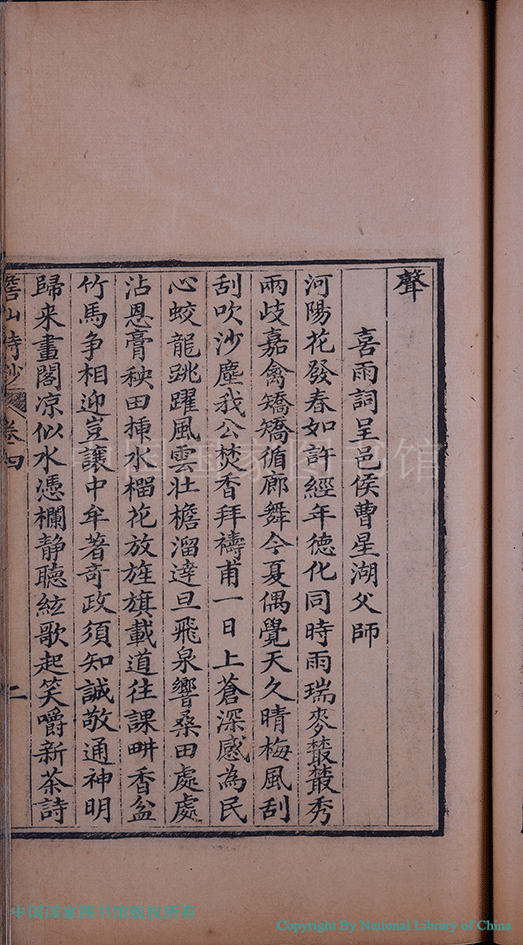 聲
喜雨詞呈邑侯曹星湖父師
河陽花發春如許經年德化同時雨瑞麥藂藂秀
兩歧嘉禽矯矯循廊舞今夏偶覺天久晴梅風刮
刮吹沙塵我公焚香拜禱甫一日上蒼深感為民
心蛟龍跳躍風雲壯檐溜達旦飛泉響桑田處處
沾恩膏秧田揷水榴花放旌旗載道往課畊香盆
竹馬争相迎豈讓中牟著奇政須知誠敬通神明
歸来畫閣凉似水憑欄静聽絃歌起笑嚼新茶詩
詹山詩鈔 卷四 二
中国国家图书馆
中国国家图书馆版权所有
Copyright By National Library of China